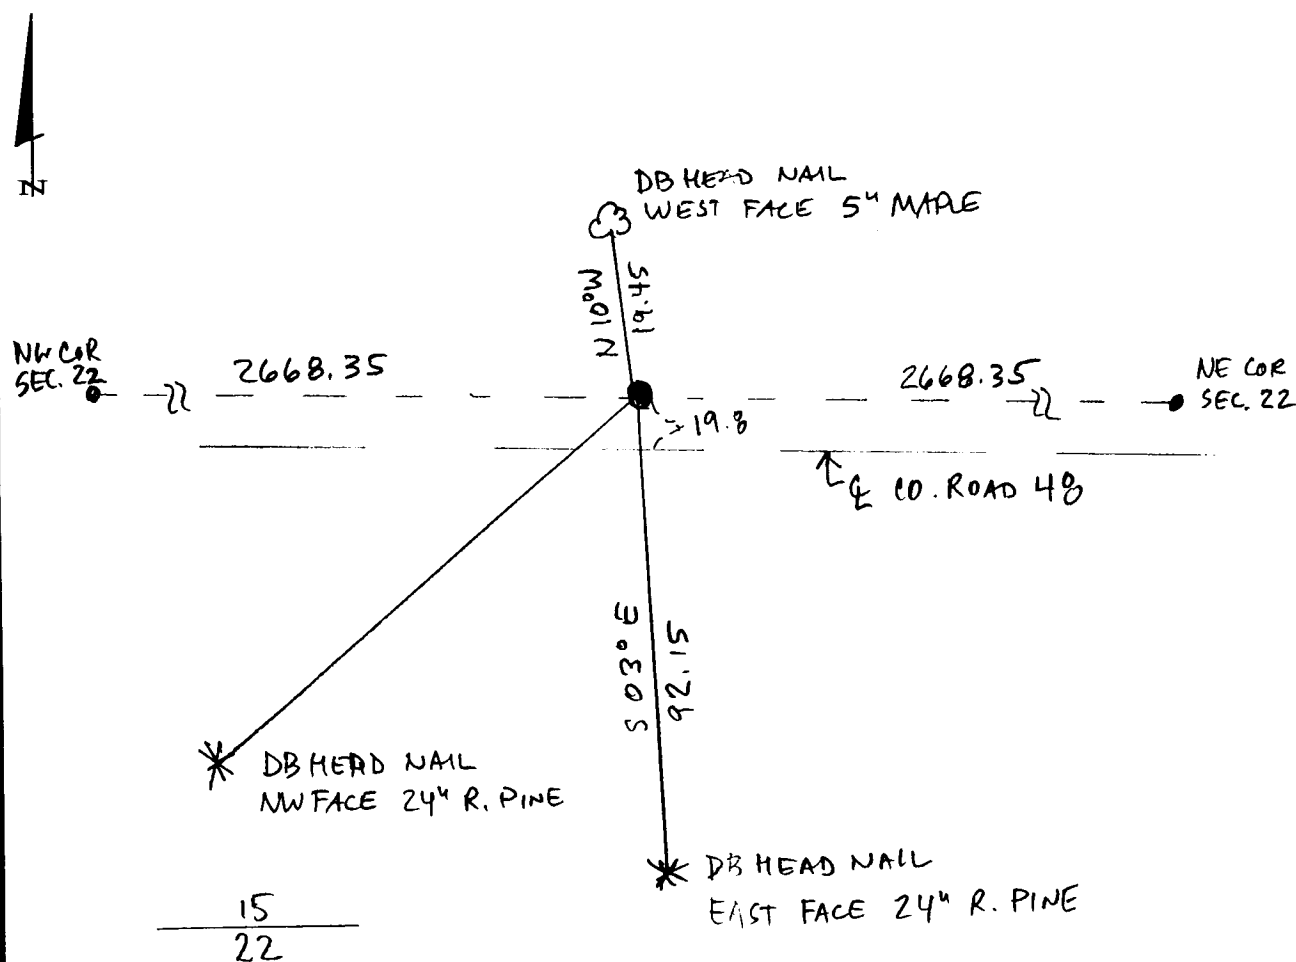 N
DB HEAD NAIL
WEST FACE 5" MAPLE
N 10° W
19.45
NW COR
SEC. 22
2668.35
2668.35
NE COR
SEC. 22
19.8
℄ CO. ROAD 48
S 03° E
92.15
DB HEAD NAIL
NW FACE 24" R. PINE
DB HEAD NAIL
EAST FACE 24" R. PINE
15
22